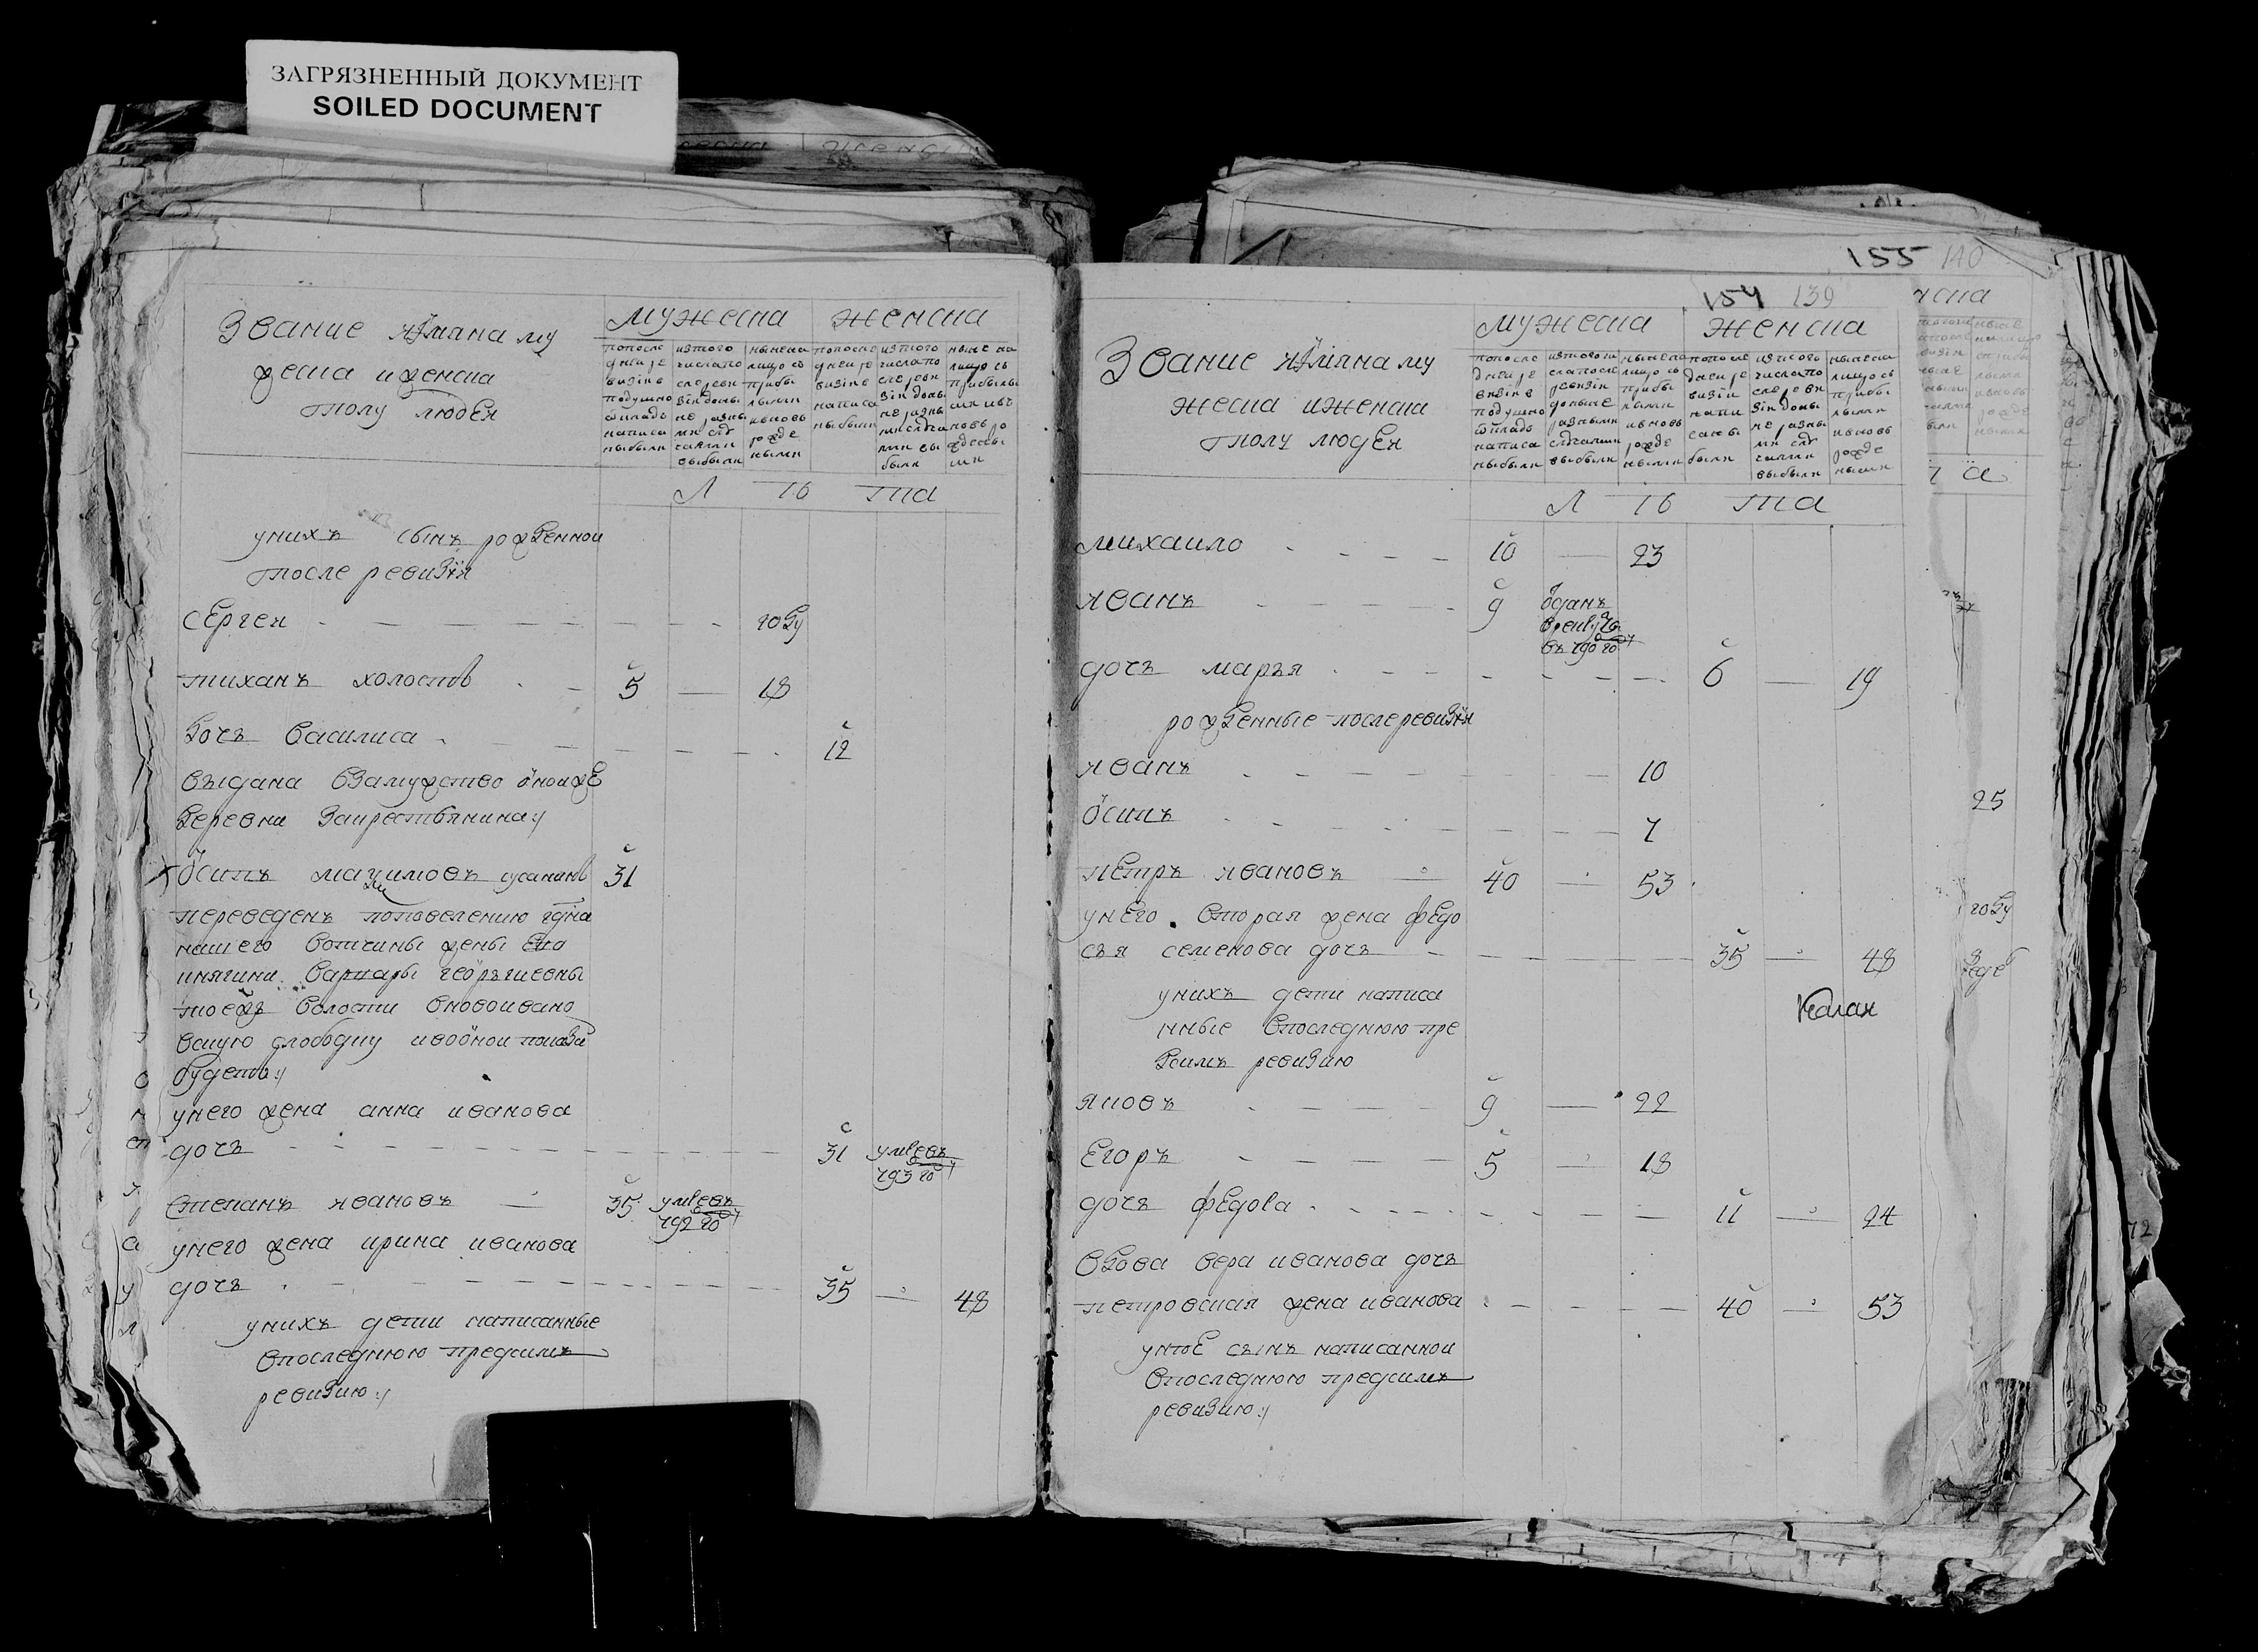 ЗАГРЯЗНЕННЫЙ ДОКУМЕНТ
SOILED DOCUMENT
Звание и имяна му
жеска и женска
полу людей
мужеска
женска
попосле
дней ре
визіи в
подушно
окладъ
написа
ны были
изтого
числа по
сле реви
зіи доны
не разны
ми слу
чаями
выбыли
ныне на
лицо съ
прибы
лыми
и вновь
рожде
ными
попосле
дней ре
визіи
написа
ны были
изтого
числа по
сле реви
зіи доны
не разны
ми случа
ями вы
были
ныне на
лицо съ
прибылы
ми и въ
новь ро
жденны
ми
лѣта
у нихъ сынъ рожденной
после ревизіи
Сергей году
тиханъ холостъ 5 18
дочь василиса 12
выдана взамужство оной же
деревни за крестьянина
осипъ максимовъ 31
переведенъ по повелению гдна
нашего вотчины жены ево
княгини варвары георъгиевны
тоежъ волости в новоивано
вскую слободку и в оной показа
будетъ
у него жена анна иванова
дочь 31 умре въ
793 го
Степанъ ивановъ 35 умре въ
792 го
у него жена ирина иванова
дочь 35 48
у нихъ дети написанные
в последнюю предсимъ
ревизию
155 140
154 139
Звание и имяна му
жеска и женска
полу людей
мужеска
женска
попосле
дней ре
визіи в
подушно
окладъ
написа
ны были
изтого чи
сла после
ревизіи
доныне
разными
случаями
выбыли
ныне на
лицо съ
прибы
лыми
и вновь
рожде
ными
попосле
дней ре
визіи
напи
саны
были
изтого
числа по
сле реви
зіи доны
не разны
ми слу
чаями
выбыли
ныне на
лицо съ
прибы
лыми
и вновь
рожде
ными
лѣта
михаило 10 23
иванъ 9 отданъ
в рекруты
въ 790 го
дочь марья 6 19
рожденные после ревизіи
иванъ 10
осипъ 7
петръ ивановъ 40 53
у него вторая жена федо
сья семенова дочь 35 48
у нихъ дети написа
нные в последнюю пре
дсимъ ревизию
яковъ 9 22
Егоръ 5 18
дочь федора 11 24
вдова вера иванова дочь
петровская жена иванова 40 53
у нее сынъ написанной
в последнюю предсимъ
ревизию
25
году